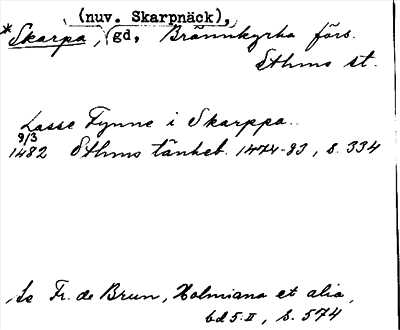 (nuv. Skarpnäck),
*Skarpa, gd, Brännkyrka förs.
Sthms st.
Lasse Fynne i Skarppa..
9/3
1482 Sthms tänkeb. 1474-83, s. 334
Se Fr. de Brun, Holmiana et alia,
bd 5:II, s. 574